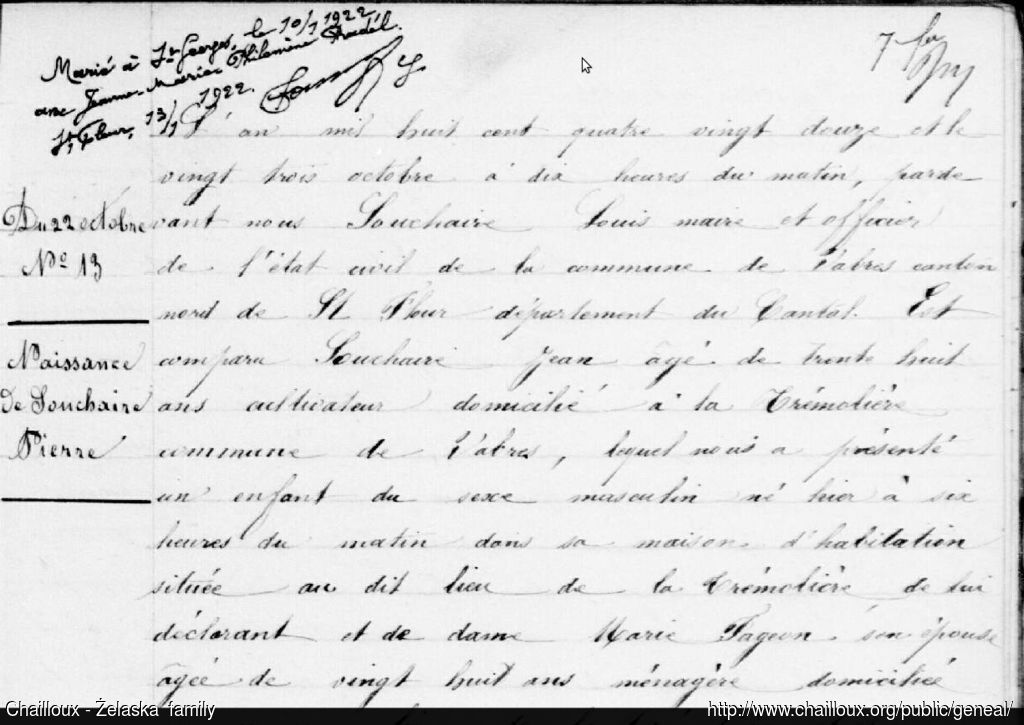 Marié à St Georges, le 10/1 1922
avec Jeanne-Marie Philomène
St Flour, 13/1 1922.
7
L'an mil huit cent quatre vingt douze et le
vingt trois octobre à dix heures du matin, parde
Du 22 octobre
N° 13
Naissance
De Souchaire
Pierre
vant nous Souchaire Louis maire et officier
de l'état civil de la commune de Vabres canton
nord de St Flour département du Cantal. Est
comparu Souchaire Jean âgé de trente huit
ans cultivateur domicilié à la Trémolière
commune de Vabres, lequel nous a présenté
un enfant du sexe masculin né hier à six
heures du matin dans sa maison d'habitation
située au dit lieu de la Trémolière de lui
déclarant et de dame Marie Fageon son épouse
âgée de vingt huit ans ménagère domiciliée
Chailloux - Żelaska family
http://www.chailloux.org/public/geneal/